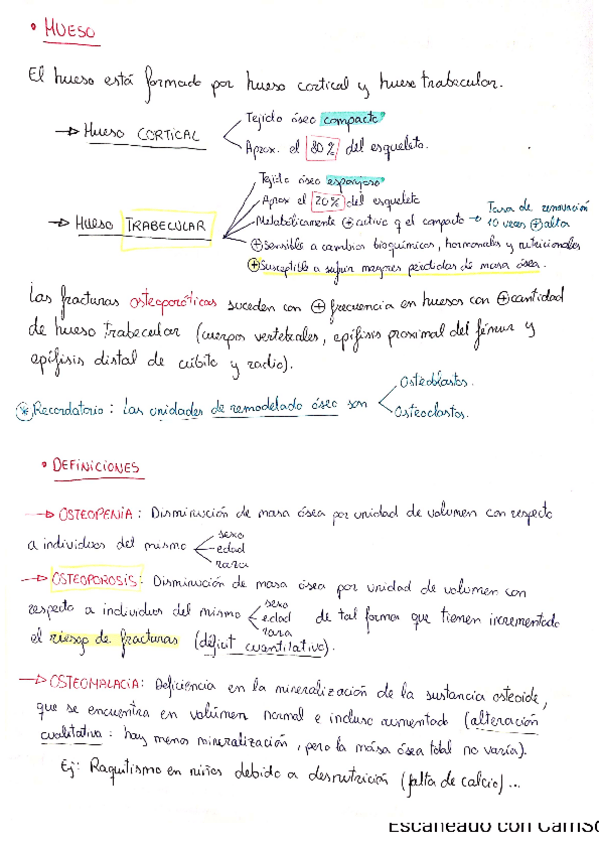 • HUESO
El hueso está formado por hueso cortical y hueso trabecular.
→ Hueso CORTICAL
Tejido óseo compacto
Aprox. el 80% del esqueleto.
→ Hueso TRABECULAR
Tejido óseo esponjoso
Aprox el 20% del esqueleto
Metabólicamente ⊕ activo q el compacto → Tasa de renovación
10 veces ⊕ alta
⊕ sensible a cambios bioquímicos, hormonales y nutricionales
⊕ susceptible a sufrir mayores pérdidas de masa ósea.
Las fracturas osteoporóticas suceden con ⊕ frecuencia en huesos con ⊕ cantidad
de hueso trabecular (cuerpos vertebrales, epífisis proximal del fémur y
epífisis distal de cúbito y radio).
* Recordatorio: las unidades de remodelado óseo son
Osteoblastos.
Osteoclastos.
• DEFINICIONES
→ OSTEOPENIA: Disminución de masa ósea por unidad de volumen con respecto
a individuos del mismo
sexo
edad
raza
→ OSTEOPOROSIS: Disminución de masa ósea por unidad de volumen con
respecto a individuos del mismo
sexo
edad
raza
de tal forma que tienen incrementado
el riesgo de fracturas (déficit cuantitativo).
→ OSTEOMALACIA: Deficiencia en la mineralización de la sustancia osteoide,
que se encuentra en volumen normal e incluso aumentado (alteración
cualitativa: hay menos mineralización, pero la masa ósea total no varía).
Ej: Raquitismo en niños debido a desnutrición (falta de calcio)...
Escaneado con CamSc